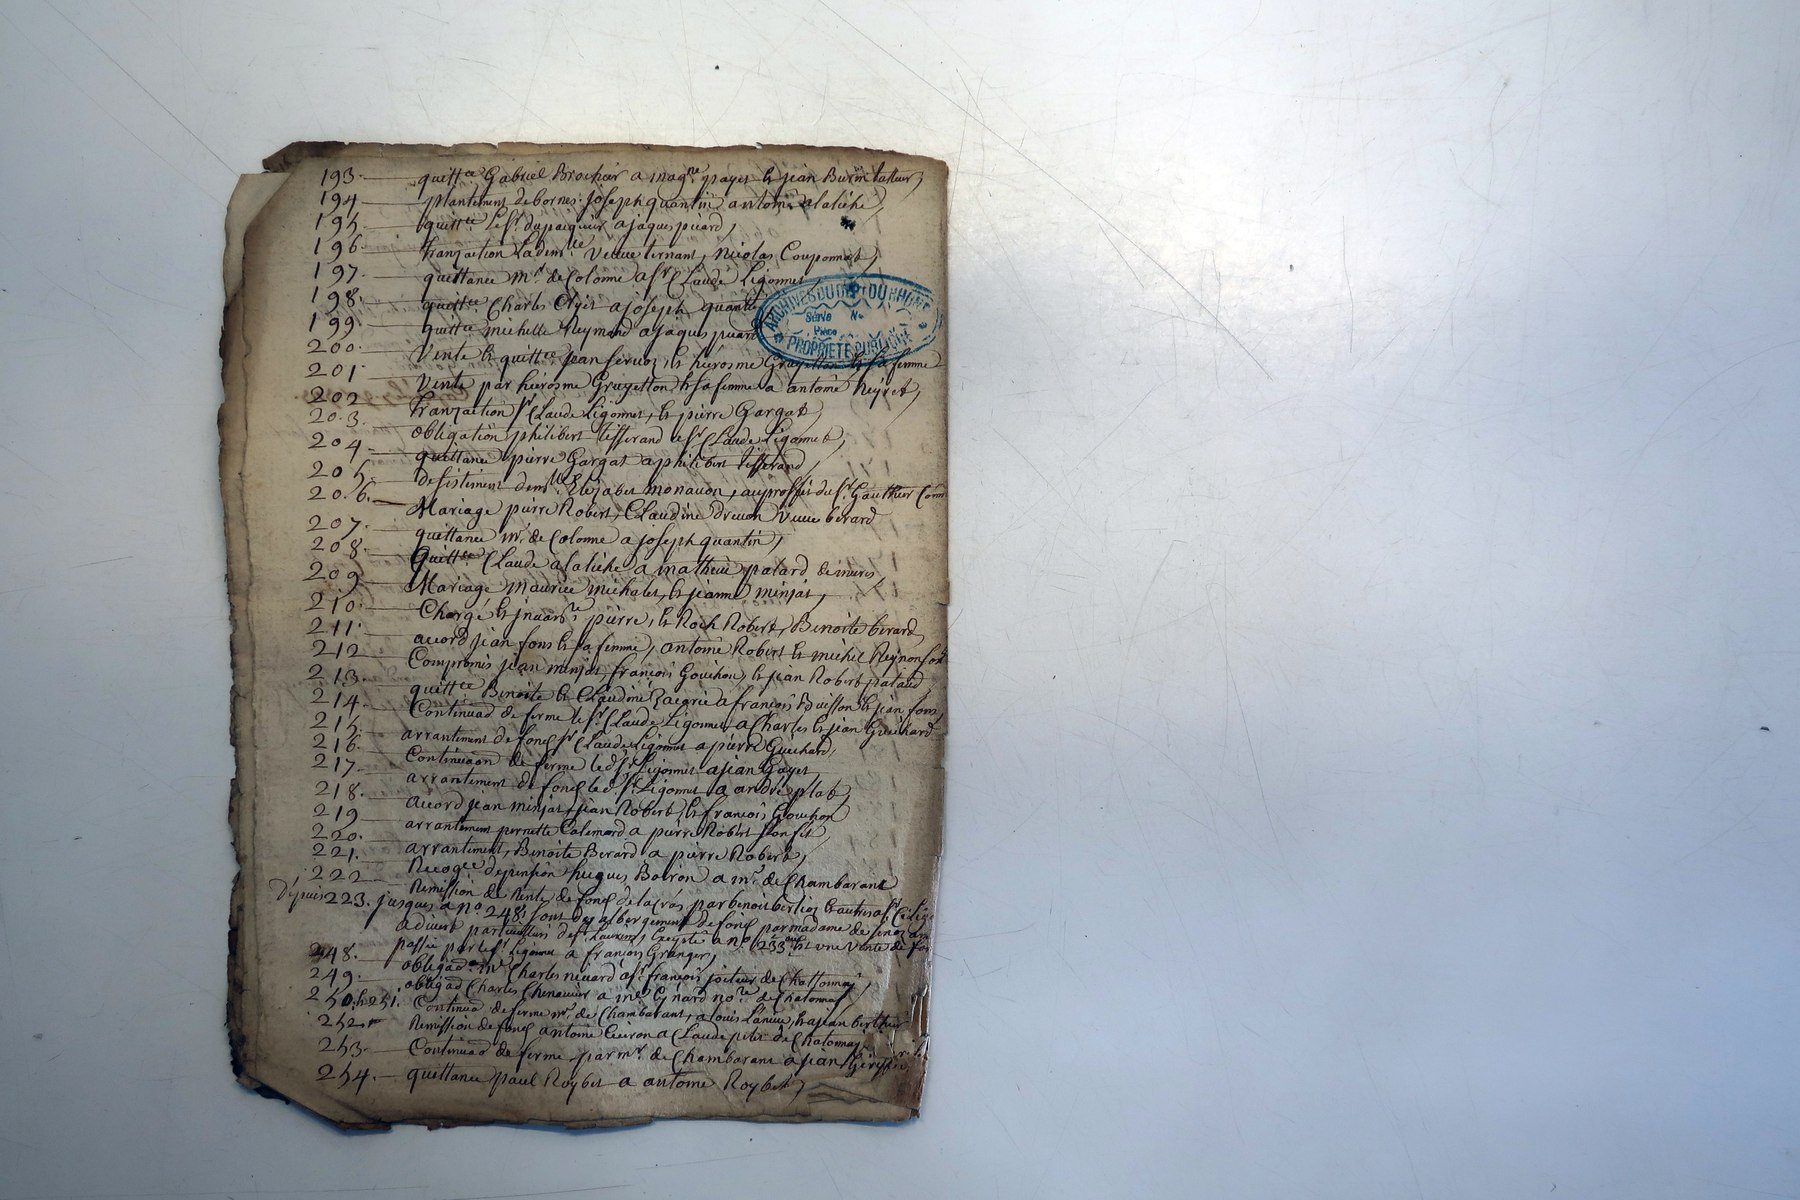 193. quitt.ce Gabriel Brochier a magne payet & jean Burin tuteur,
194 plantement de bornes joseph quantin antoine alaliche,
195 quitt.ce le sr. dupasquier a jaques picard,
196. tranzaction La demlle. Veuve ternant, nicolas Couponnat,
197. quittance mr. de Colonne a sr. Claude Ligonnet
198. quitt.ce Charles Ogier a joseph quantin
199. quitt.ce michelle Reymond a jaques picard
200. Vente & quitt.ce jean servoz, & hierosme Grugetton & sa femme
201. Vente par hierosme Grugetton & sa femme a antoine Neyret,
202 tranzaction sr. Claude Ligonnet, & pierre Gargat,
203. obligation philibert tisserand le sr. Claude Ligonnet,
204 quittance pierre Gargat a philibert tisserand,
205 desistement demlle. Elizabet monavon, au proffit du sr. Gauthier
206. Mariage pierre Robert, Claudine drevon Veuve berard
207. quittance mr. de Colonne a joseph quantin,
208. Quitt.ce Claude alaliche a matheu patard
209 Mariage maurice michalet, & jeanne minjat,
210. Charge & pierre, & Roch Robert, Benoite berard,
211. acord jean fons & sa femme, antoine Robert & michel Reynon
212 Compromis jean minjat, francois Gouchon, & jean Robert pataud,
213. quitt.ce Benoite & Claudine a francois Buisson & jean fons,
214. Continuad de ferme le sr. Claude Ligonnet, a Charles & jean Guichard
215. arrantement de fonds sr. Claude Ligonnet a pierre Guichard,
216. Continuaon de ferme led. sr. Ligonnet a jean Gayet,
217. arrantement de fonds led. sr. Ligonnet a andré plat,
218. acord jean minjat, jean Robert, & francois Gouchon
219 arrantement pernette Calemard a pierre Robert son fils,
220. arrantement, Benoite Berard a pierre Robert,
221. de pension hugues Boiron a mr. de Chambarant
222 Remission de Rente de fonds par benoit berlioz & autres
Depuis 223. jusques a no. 248, sont des albergement de fonds par madame de
a divers particulliers de st. Laurens, Excepté a no. 233 est une Vente de
passée par le sr. Ligonnet a francois Granger,
248. obligad. me. Charles nevard a sr. francois joiteur de Chattonnay,
249. obligad Charles Chenavier a me Ginard nore. de Chatonnay,
250. & 251. Continuad de ferme mr. de Chambarant, a Louis & a jean berthier
252 Remission de fonds antoine Ciceron a Claude petit de Chatonnay
253. Continuad de ferme par mr. de Chambarant a jean
254. quittance paul Roybet a antoine Roybet,
ARCHIVES DU DÉPT DU RHONE
Série No
Pièce
PROPRIÉTÉ PUBLIQUE